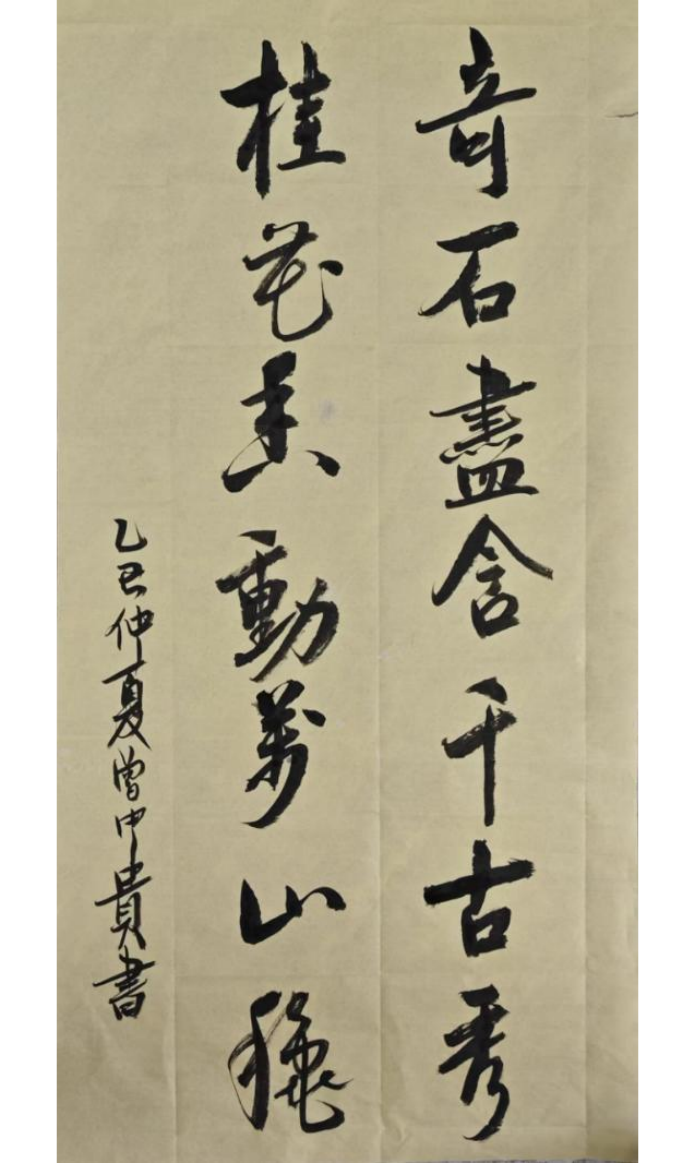 奇石盡含千古秀
桂花香動萬山龝
乙巳仲夏曾中貴書